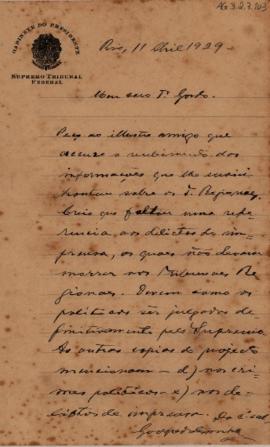 AG 3.2.7.103
GABINETE DO PRESIDENTE
SUPREMO TRIBUNAL
FEDERAL
Rio, 11 Abril 1929
Meu caro Dr. Gordo.
Peço ao illustre amigo que
accuse o recebimento das
informações que lhe
sobre os
Creio que faltou uma refe-
rencia, aos delictos de im-
prensa, os quaes não devem
morrer nos Tribunaes Re-
gionaes. Devem como os
politicos ser julgados de-
finitivamente pelo Supremo
As outras copias do projecto
mencionam - d) nos cri-
mes politicos - e) nos de-
lictos de imprensa. Do